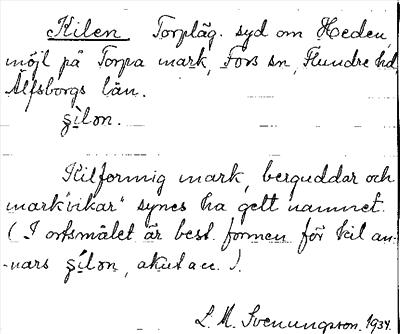 Kilen Torpläg. syd om Heden,
möjl på Torpa mark, Fors sn, Flundre hd,
Älfsborgs län.
ʂìlɔn.
Kilformig mark, berguddar och
mark"vikar" synes ha gett namnet.
(I ortsmålet är best. formen för kil an-
-nars ʂílɔn, akut acc.).
L. M. Svenungson. 1934.